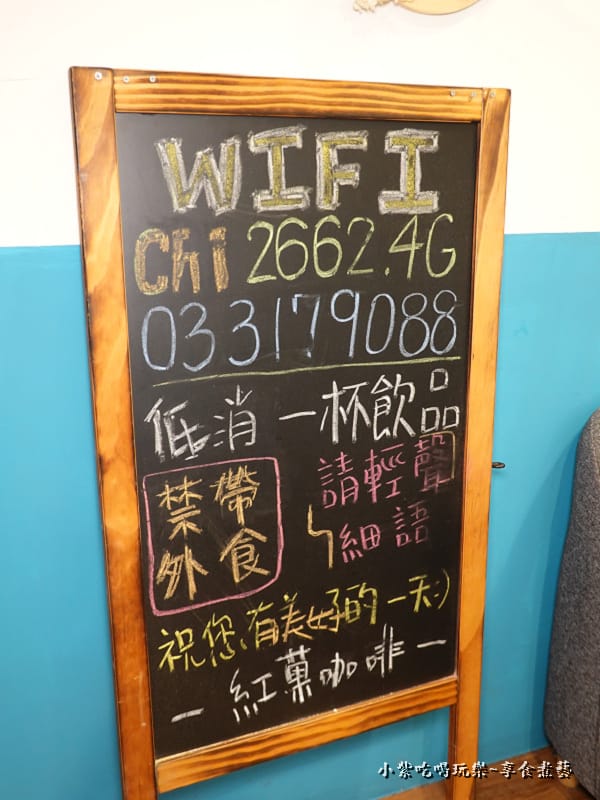 WIFI
Chi 2662.4G
033179088
低消 一杯飲品
禁帶
外食
請輕聲
細語
祝您有美好的一天:)
－紅菓咖啡－
小紫吃喝玩樂~享食煮藝